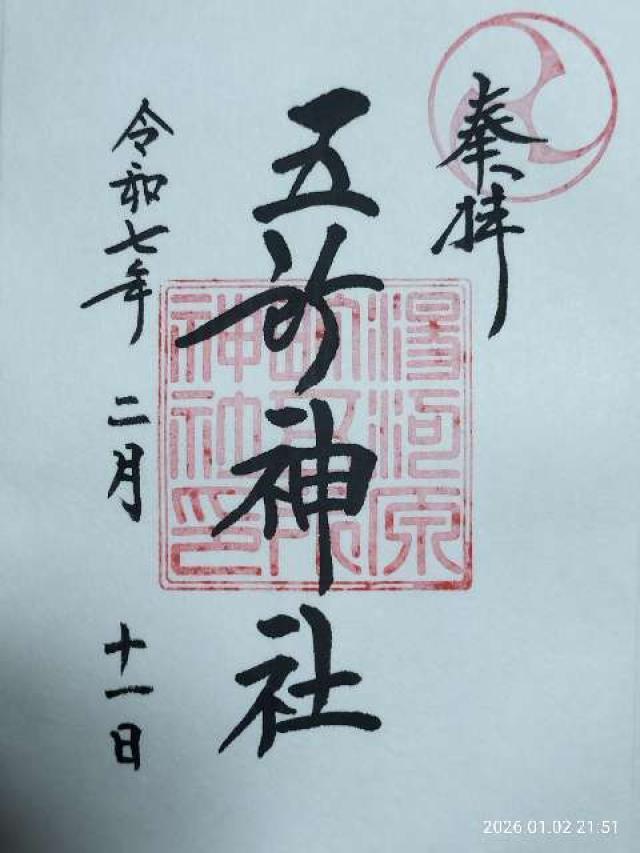 奉拝
五所神社
令和七年 二月 十一日
湯河原
神社印
2026 01.02 21:51